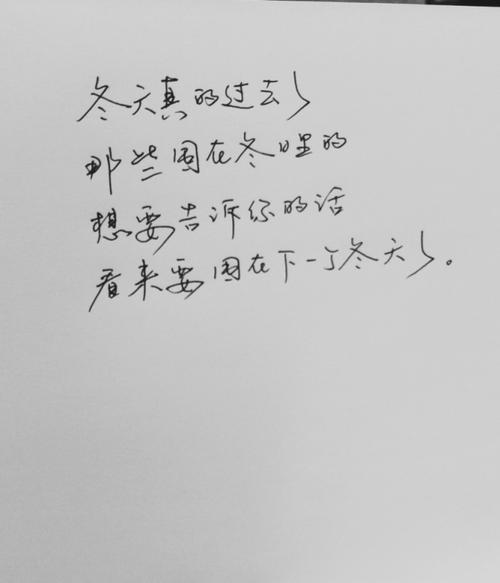 冬天真的过去了
那些困在冬日里的
想要告诉你的话
看来要困在下一个冬天了。